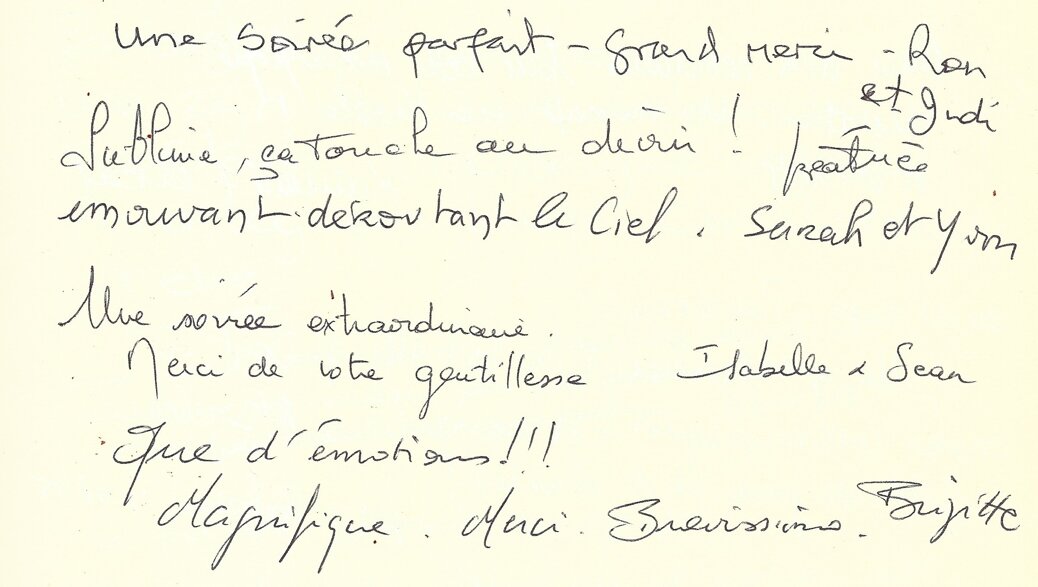 Une soirée parfait - Grand merci - Ron
et Judi
Sublime, ça touche au divin !
émouvant. le Ciel. Sarah et Yvon
Une soirée extraordinaire.
Merci de votre gentillesse Isabelle & Sean
Que d'émotions!!!
Magnifique. Merci. Bravissimo. Brigitte